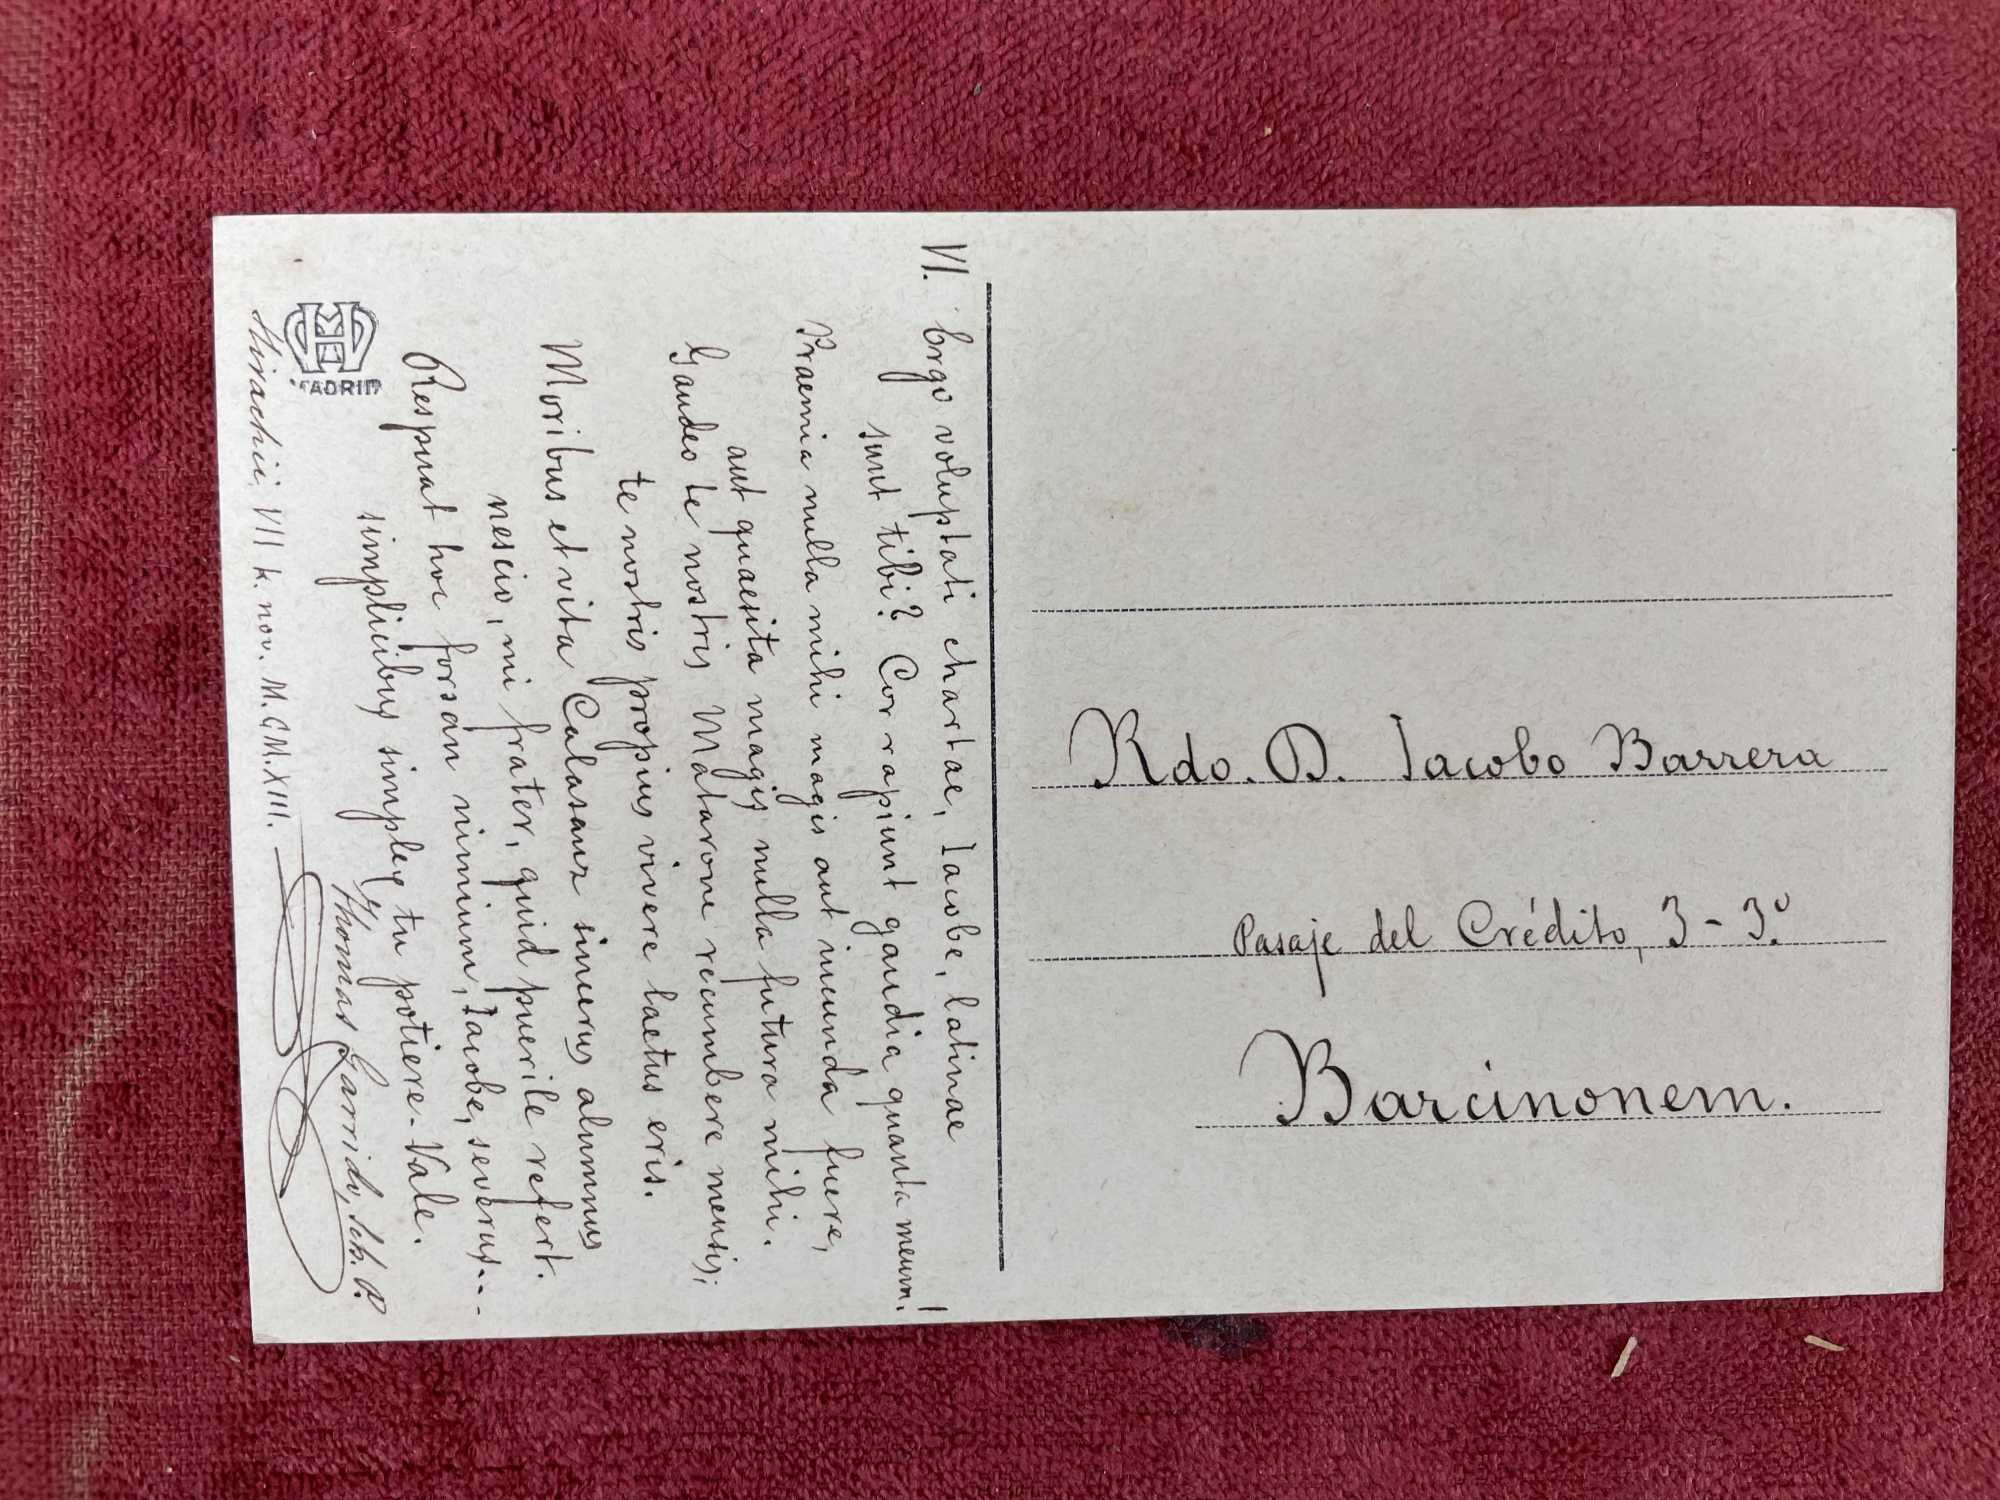 VI. Ergo voluptati chartae, Iacobe, latinae
sunt tibi? Cor rapiunt gaudia quanta meum!
Praemia nulla mihi magis aut iucunda fuere,
aut quaesita magis nulla futura mihi.
Gaudeo te nostris Matarone recumbere mensis;
te nostris propius vivere laetus eris.
Moribus et vita Calasanz sincerus alumnus
nescio, mi frater, quid puerile refert.
Respuat hoc forsan nimium, Iacobe, severus...
simplicibus simplex tu potiere. Vale.
Thomas Garrido, Sch. P.
VII k. nov. M.CM.XIII.
MADRID
Rdo. D. Iacobo Barrera
Pasaje del Crédito, 3-3.º
Barcinonem.